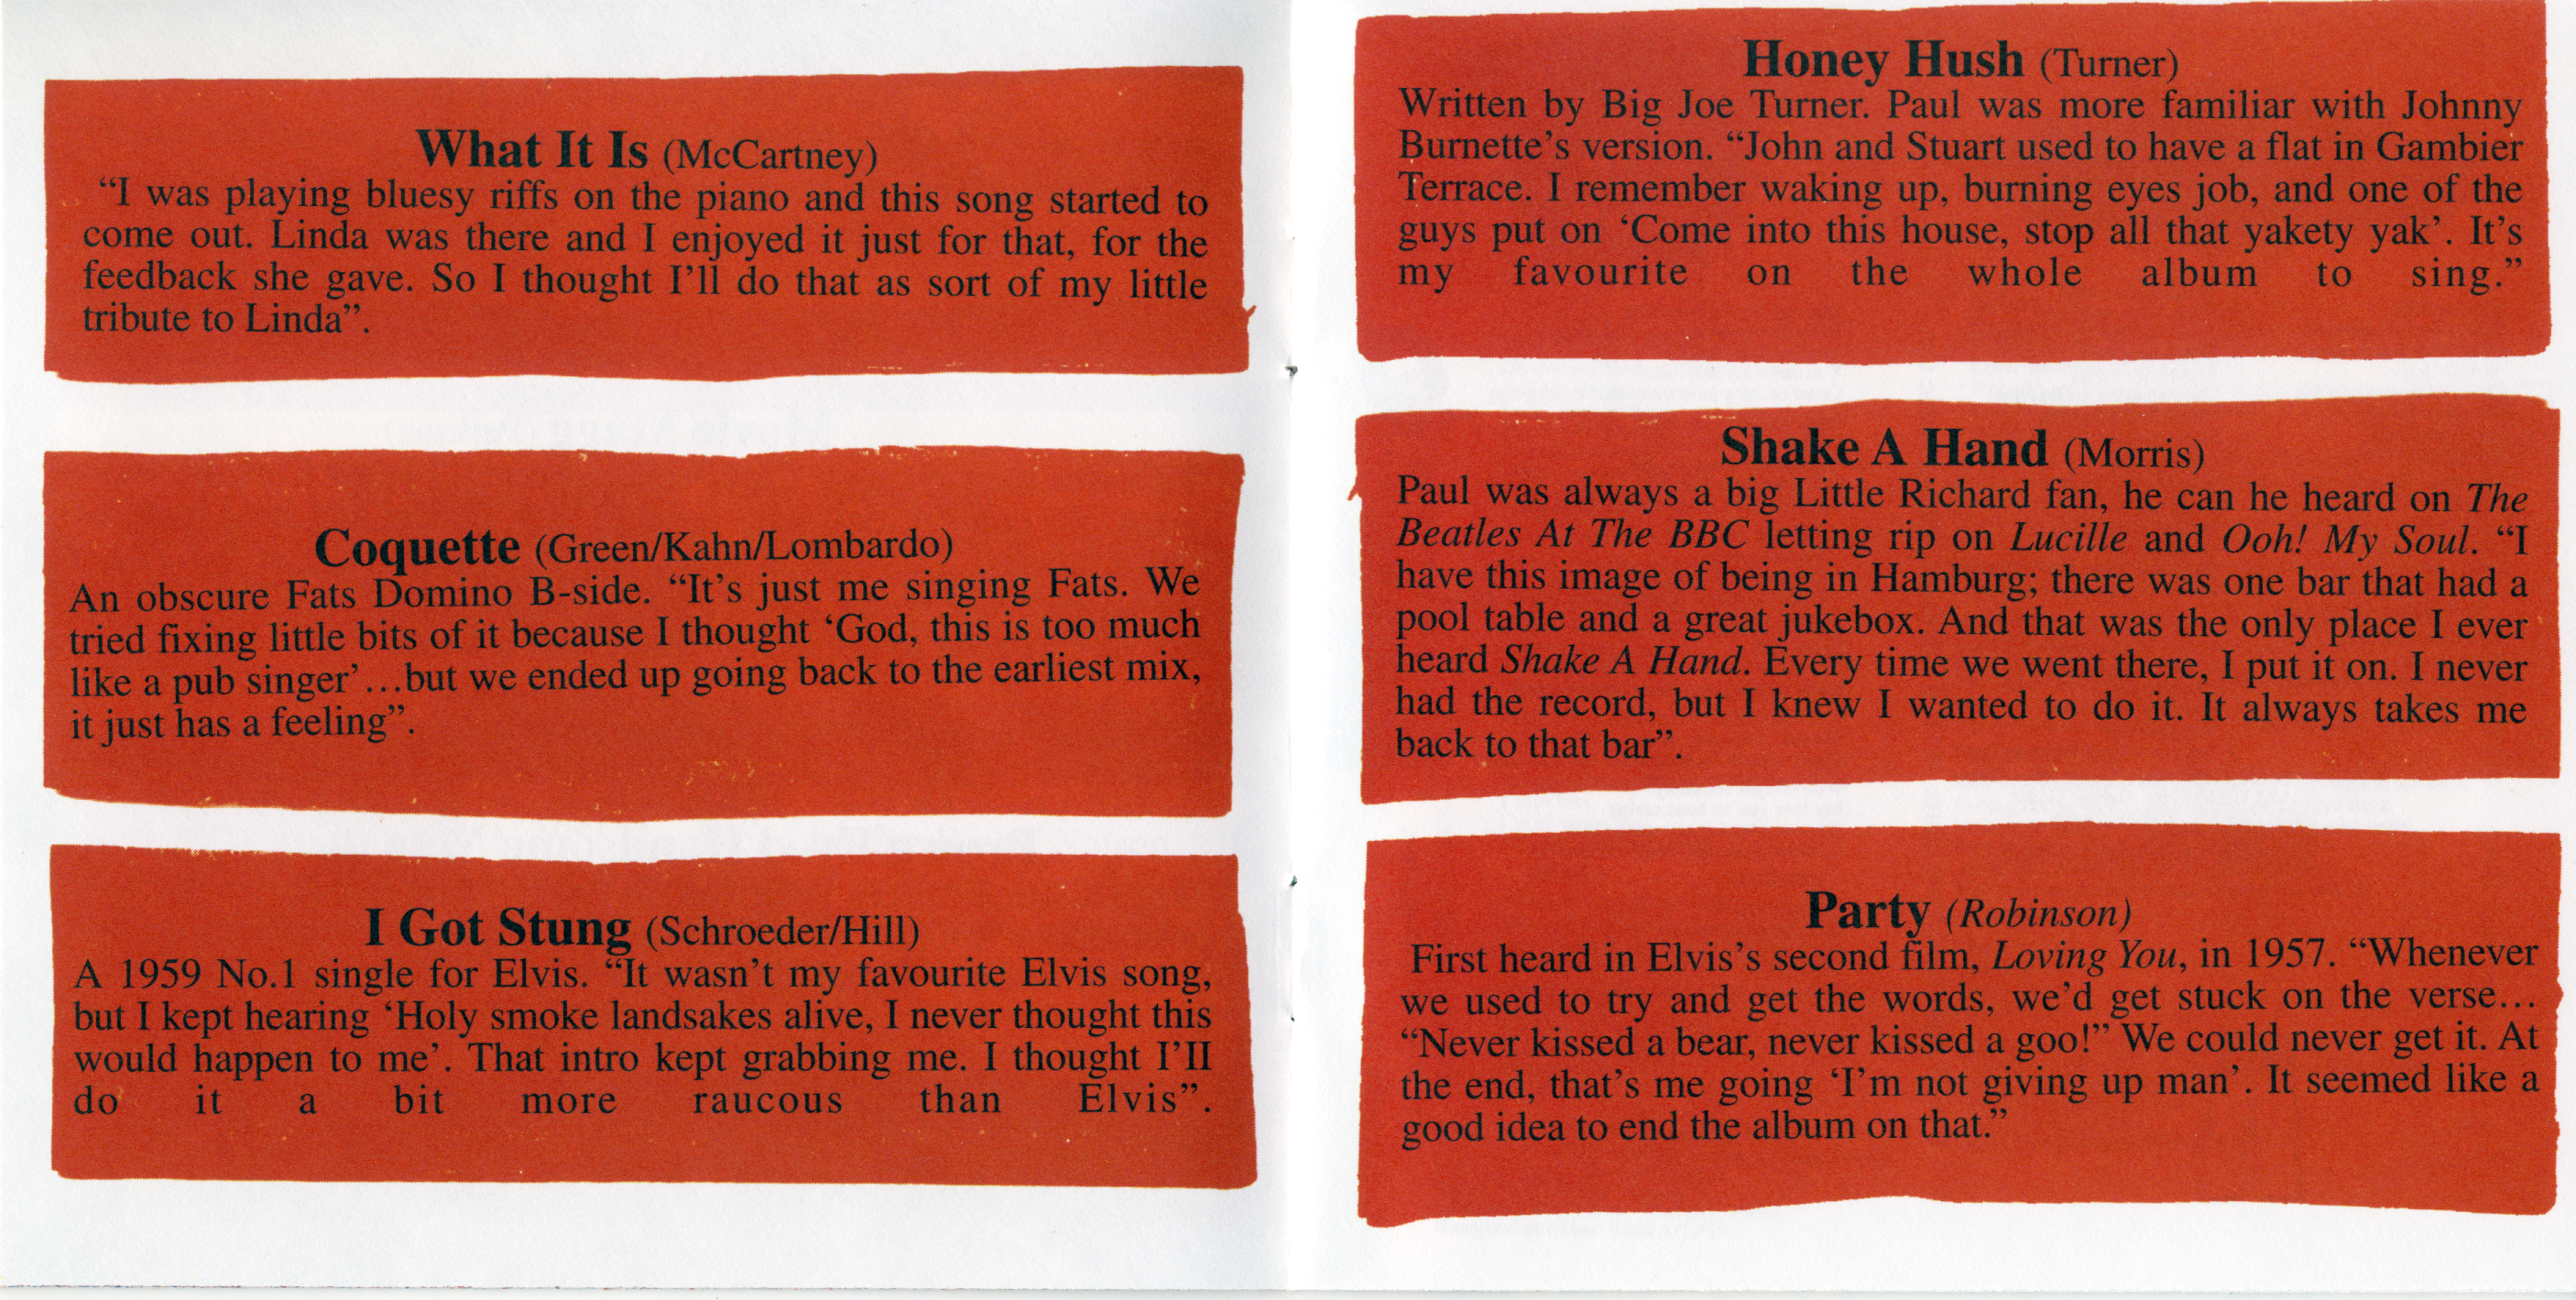 What It Is (McCartney)
“I was playing bluesy riffs on the piano and this song started to
come out. Linda was there and I enjoyed it just for that, for the
feedback she gave. So I thought I’ll do that as sort of my little
tribute to Linda”.
Coquette (Green/Kahn/Lombardo)
An obscure Fats Domino B-side. “It’s just me singing Fats. We
tried fixing little bits of it because I thought ‘God, this is too much
like a pub singer’...but we ended up going back to the earliest mix,
it just has a feeling”.
I Got Stung (Schroeder/Hill)
A 1959 No.1 single for Elvis. “It wasn’t my favourite Elvis song,
but I kept hearing ‘Holy smoke landsakes alive, I never thought this
would happen to me’. That intro kept grabbing me. I thought I’II
do it a bit more raucous than Elvis”.
Honey Hush (Turner)
Written by Big Joe Turner. Paul was more familiar with Johnny
Burnette’s version. “John and Stuart used to have a flat in Gambier
Terrace. I remember waking up, burning eyes job, and one of the
guys put on ‘Come into this house, stop all that yakety yak’. It’s
my favourite on the whole album to sing.”
Shake A Hand (Morris)
Paul was always a big Little Richard fan, he can he heard on The
Beatles At The BBC letting rip on Lucille and Ooh! My Soul. “I
have this image of being in Hamburg; there was one bar that had a
pool table and a great jukebox. And that was the only place I ever
heard Shake A Hand. Every time we went there, I put it on. I never
had the record, but I knew I wanted to do it. It always takes me
back to that bar”.
Party (Robinson)
First heard in Elvis’s second film, Loving You, in 1957. “Whenever
we used to try and get the words, we’d get stuck on the verse...
“Never kissed a bear, never kissed a goo!” We could never get it. At
the end, that’s me going ‘I’m not giving up man’. It seemed like a
good idea to end the album on that.”